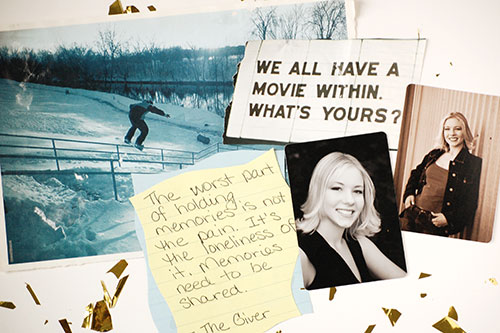 WE ALL HAVE A
MOVIE WITHIN.
WHAT'S YOURS?
The worst part
of holding
memories is not
the pain. It's
the loneliness of
it. Memories
need to be
shared.
The Giver